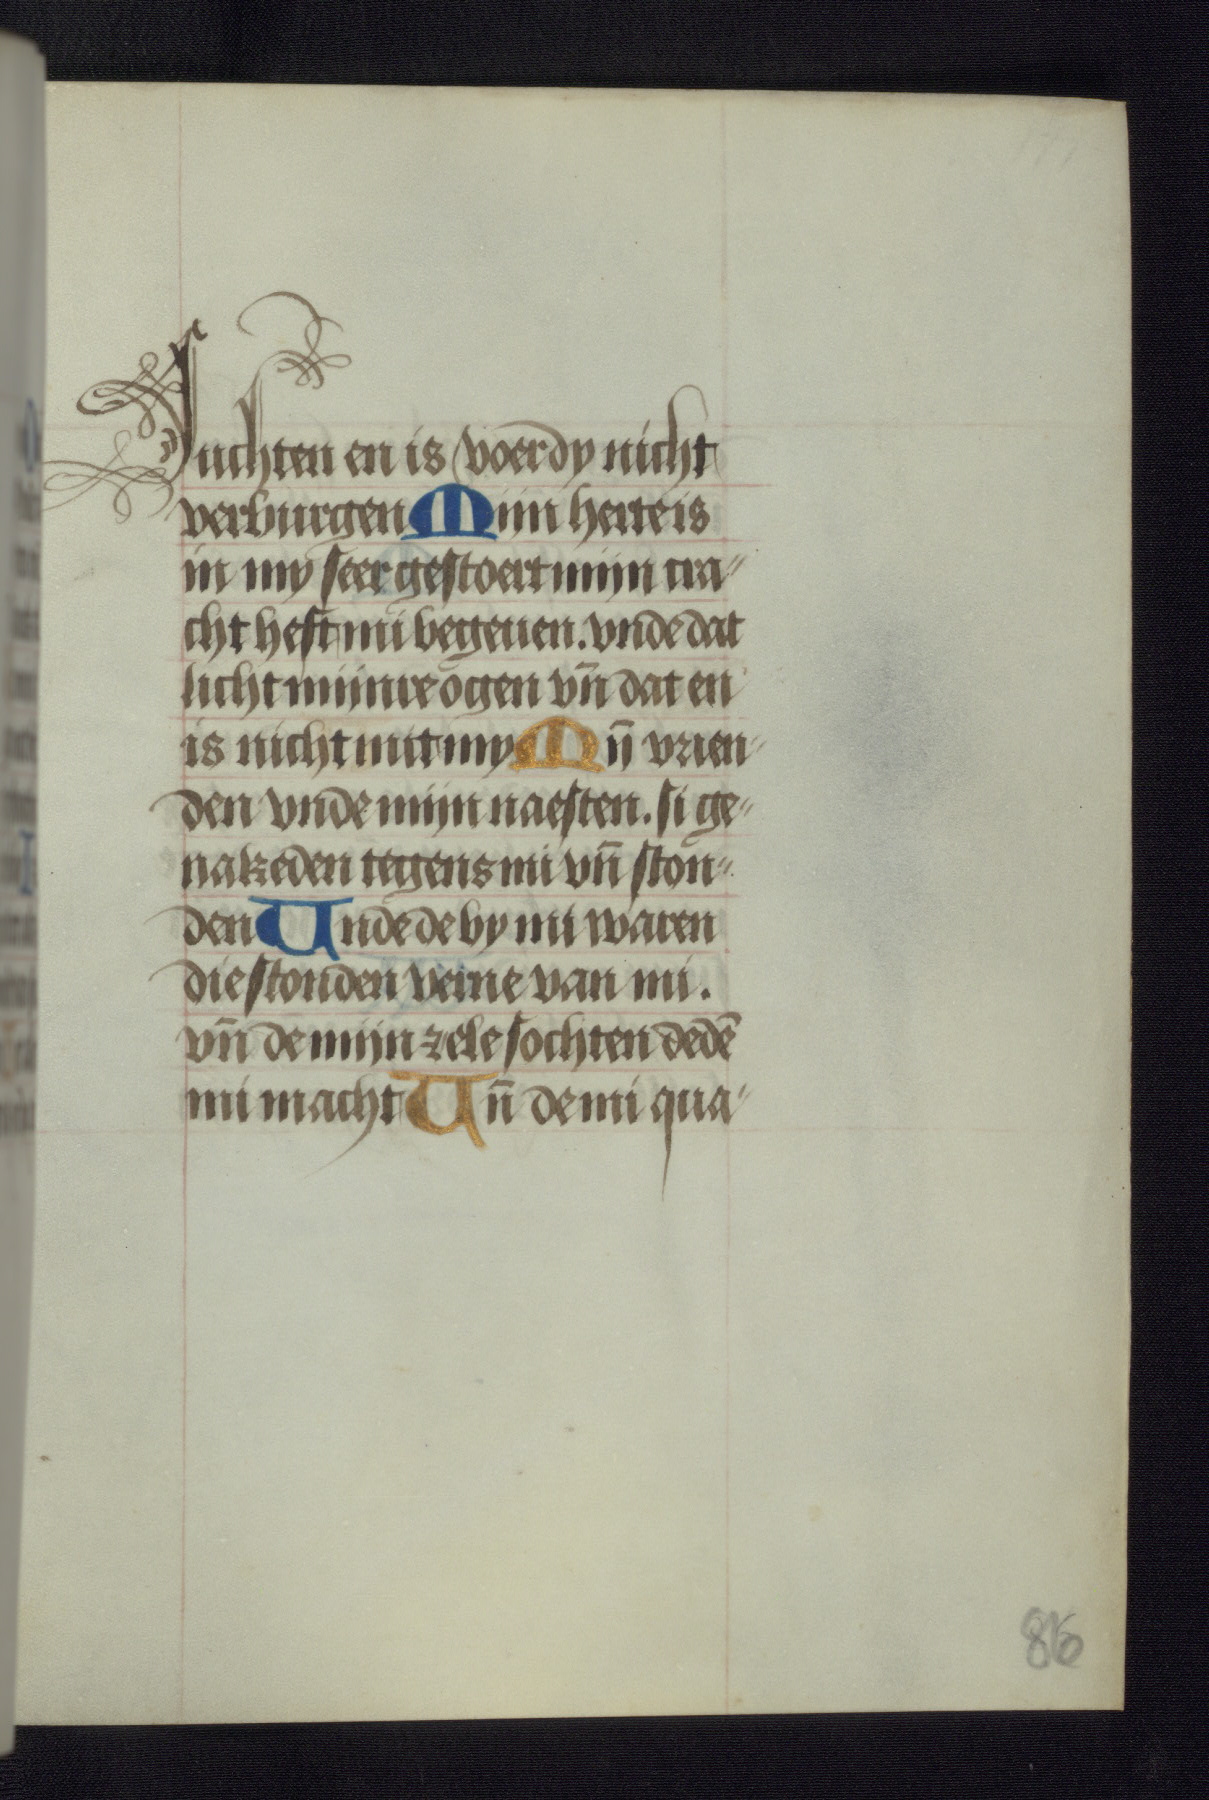 Suchten en is voer dy nicht
verburgen Mijn herte is
in my seer gestoert mijn cra〃
cht heft mi begeuen. vnde dat
licht mijnre ogen vn̄ dat en
is nicht mit my Mn̄ vrien〃
den vnde mijn naesten. si ge〃
nakeden tegens mi vn̄ ston〃
den Vnde de by mi waren
die stonden veirne van mi.
vn̄ de mijn zele sochten dedē
mi macht Vn̄ de mi qua〃
86